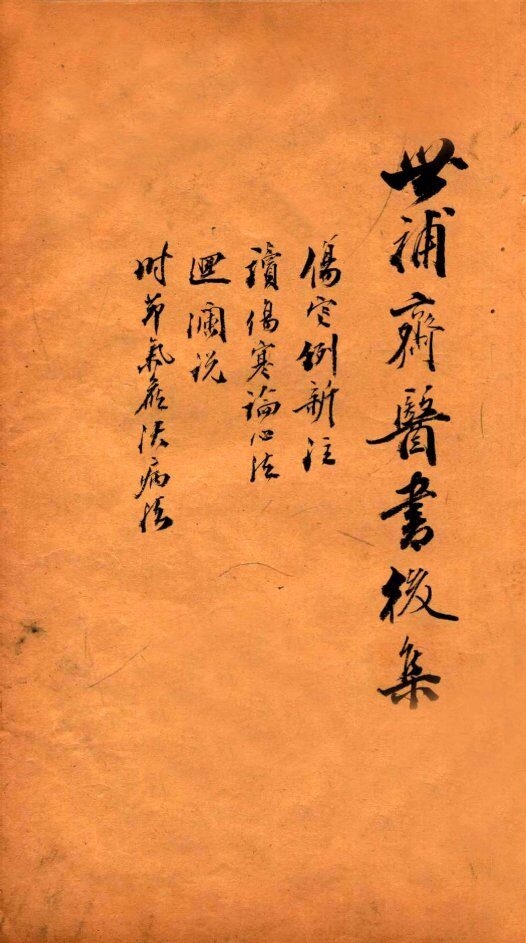 世補齋醫書後集
傷寒例新注
讀傷寒論心法
迴瀾说
时節氣候決病法